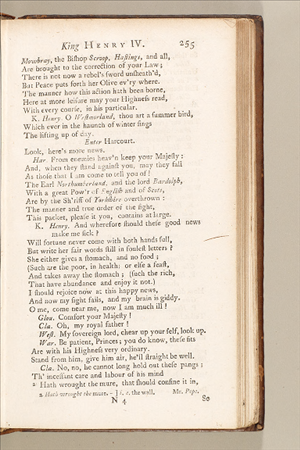 King HENRY IV. 255
Mowbray, the Bishop Scroop, Hastings, and all,
Are brought to the correction of your Law;
There is not now a rebel's sword unsheath'd,
But Peace puts forth her Olive ev'ry where.
The manner how this action hath been borne,
Here at more leisure may your Highness read,
With every course, in his particular.
K. Henry. O Westmorland, thou art a summer bird,
Which ever in the haunch of winter sings
The lifting up of day.
Enter Harcourt.
Look, here's more news.
Har. From enemies heav'n keep your Majesty:
And, when they stand against you, may they fall
As those that I am come to tell you of!
The Earl Northumberland, and the lord Bardolph,
With a great Pow'r of English and of Scots,
Are by the Sh'riff of Yorkshire overthrown:
The manner and true order of the fight,
This packet, please it you, contains at large.
K. Henry. And wherefore should these good news
make me sick?
Will fortune never come with both hands full,
But write her fair words still in foulest letters?
She either gives a stomach, and no food;
(Such are the poor, in health: or else a feast,
And takes away the stomach; (such the rich,
That have abundance and enjoy it not.)
I should rejoice now at this happy news,
And now my sight fails, and my brain is giddy.
O me, come near me, now I am much ill!
Glou. Comfort your Majesty!
Cla. Oh, my royal father!
West. My sovereign lord, chear up your self, look up.
War. Be patient, Princes; you do know, these fits
Are with his Highness very ordinary.
Stand from him, give him air, he'll straight be well.
Cla. No, no, he cannot long hold out these pangs;
Th' incessant care and labour of his mind
2 Hath wrought the mure, that should confine it in,
2 Hath wrought the mure. - ] i. e. the wall. Mr. Pope.
N 4 So